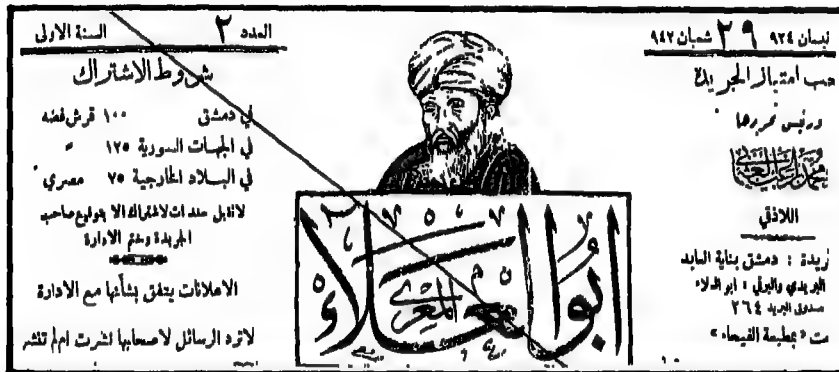 نيسان ٩٢٤ ٢٩ شعبان ٩٤٢
حب امتياز الجريدة
ورئيس تحريرها
اللاذقي
ريدة : دمشق بناية العابد
البريدي والبرقي : ابو العلاء
صندوق البريد ٢٦٤
ت « بمطبعة الفيحاء »
ابو العلاء
المعري
العدد ٢ السنة الاولى
شروط الاشتراك
في دمشق ١٠٠ قرش فضه
في الجهات السورية ١٢٥ »
في البلاد الخارجية ٧٥ مصري
لا تقبل سندات الاشتراك الا بتوقيع صاحب
الجريدة وختم الادارة
الاعلانات يتفق بشأنها مع الادارة
لا ترد الرسائل لاصحابها نشرت ام لم تنشر